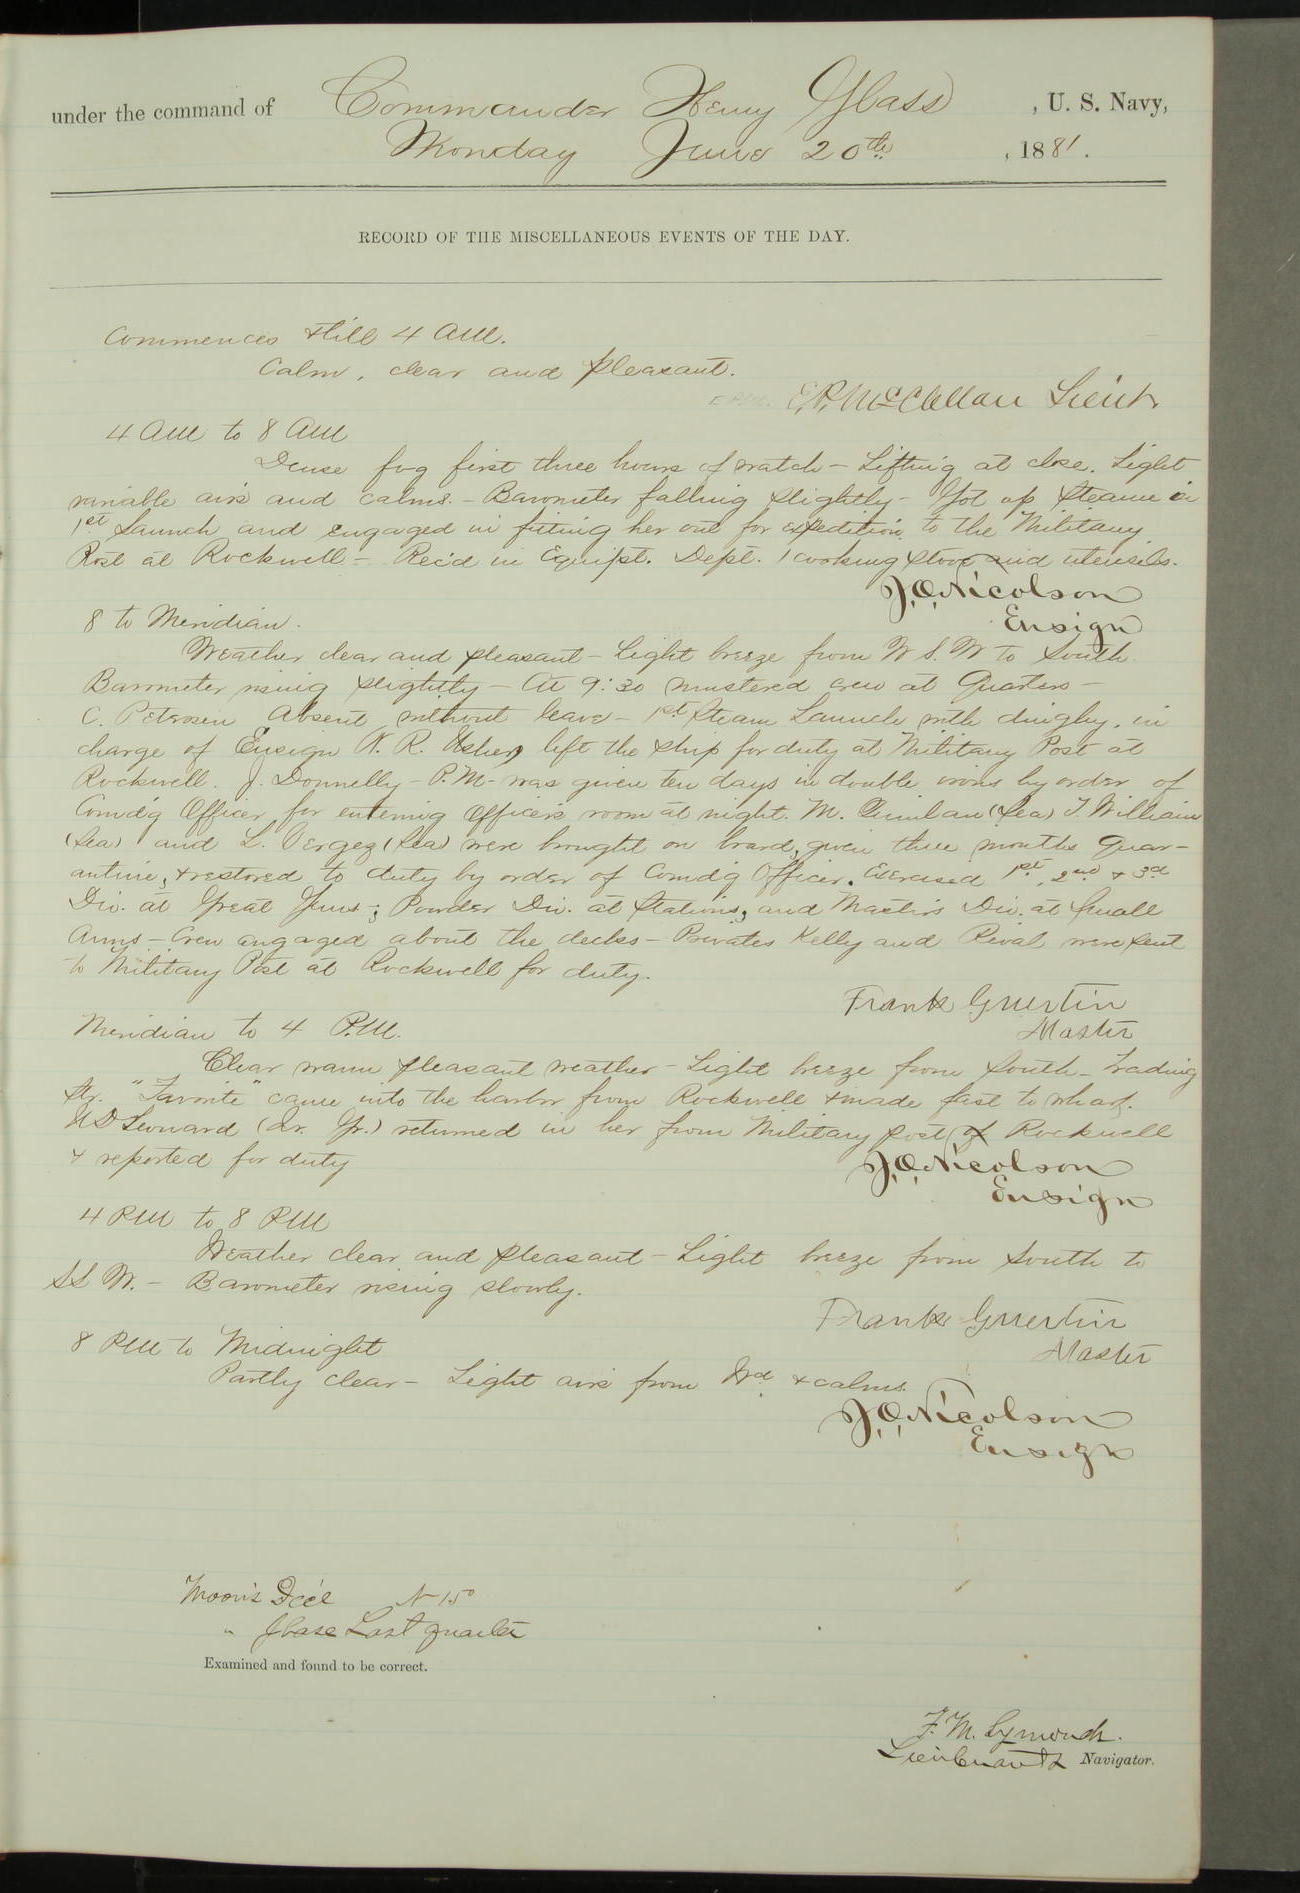 under the command of Commander Henry Glass, U. S. Navy,
Monday June 20th, 1881.
RECORD OF THE MISCELLANEOUS EVENTS OF THE DAY.
Commences & till 4 AM.
Calm, clear and pleasant.
E.P. McClellan Lieut
4 AM to 8 AM
Dense fog first three hours of watch – Lifting at close. Light
variable airs and calms. – Barometer falling slightly – Got up steam in
1st Launch and engaged in fitting her out for expedition to the Military
Post at Rockwell – Rec'd in Equipt. Dept. 1 cooking stove and utensils.
J.O. Nicolson
Ensign
8 to Meridian.
Weather clear and pleasant – Light breeze from W S. W to South.
Barometer rising slightly – At 9:30 mustered crew at Quarters –
C. Petersen Absent without leave – 1st Steam Launch with dinghy, in
charge of Ensign N. R. Usher, left the ship for duty at Military Post at
Rockwell. J. Donnelly – P.M. – was given ten days in double irons by order of
Comd'g Officer for entering Officer's room at night. M. Quinlan (Sea) T. William
(Sea) and L. Vergez (Sea) were brought on board, given three months Quar-
antine, & restored to duty by order of Comd'g Officer. Exercised 1st, 2nd & 3d
Div. at Great Guns; Powder Div. at Stations, and Master's Div. at Small
Arms – Crew engaged about the decks – Privates Kelly and Rival were sent
to Military Post at Rockwell for duty.
Frank Guertin
Master
Meridian to 4 P.M.
Clear warm pleasant weather – Light breeze from South – Trading
Str. "Favorite" came into the harbor from Rockwell & made fast to wharf.
Leonard returned in her from Military post of Rockwell
& reported for duty
J.O. Nicolson
Ensign
4 PM to 8 PM
Weather clear and pleasant – Light breeze from South to
SS W. – Barometer rising slowly.
Frank Guertin
Master
8 PM to Midnight
Partly clear – Light airs from & calms.
J.O. Nicolson
Ensign
Moon's Dec'l N 15°
" Phase Last quarter
Examined and found to be correct.
F. M. Symonds.
Lieutenant & Navigator.